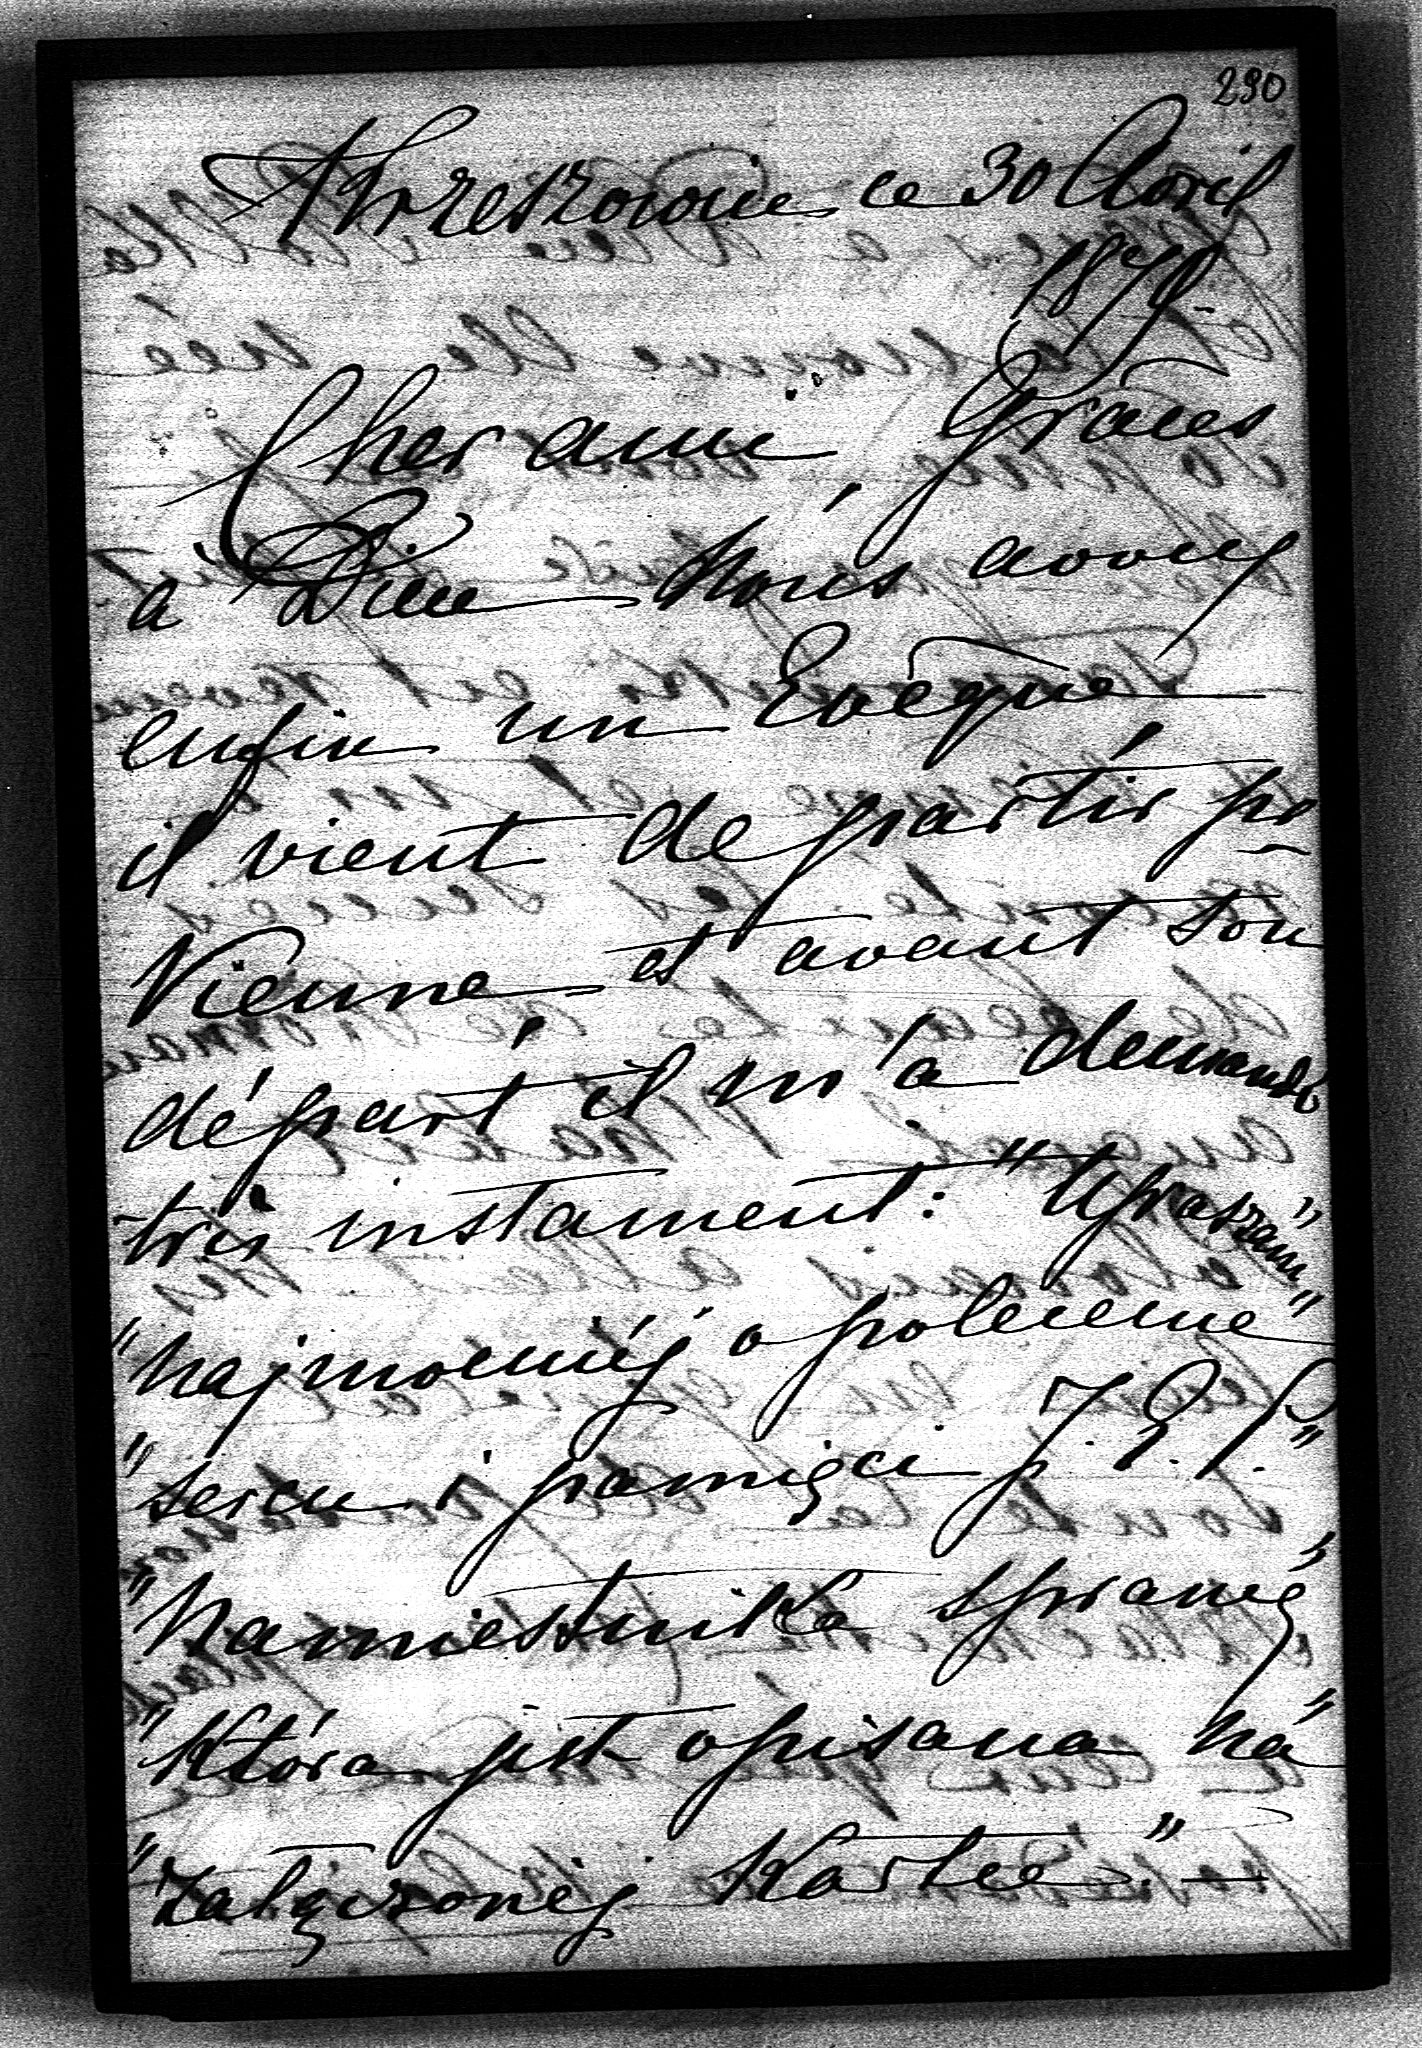 290
Krzeszowice ce 30 Avril
1879.
Cher ami, Grâces
à Dieu nous avons
enfin un Evêque
il vient de partir pr
Vienne et avant son
départ il m'a demandé
très instament: "Upraszam"
"najmocniéj o polecenie"
"sercu i pamięci J. E. P."
"Namiestnika sprawę"
"która jest opisana na"
"załączonéj kartce".—